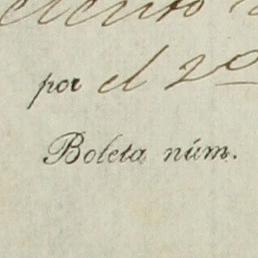 por el 2º
Boleta núm.